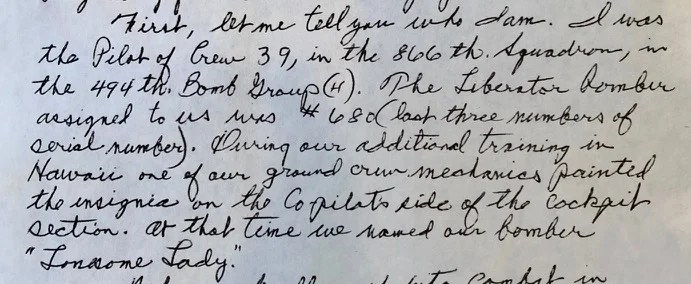 First, let me tell you who I am. I was
the Pilot of Crew 39, in the 866 th. Squadron, in
the 494 th. Bomb Group (H). The Liberator bomber
assigned to us was # 680 (last three numbers of
serial number). During our additional training in
Hawaii one of our ground crew mechanics painted
the insignia on the Copilots side of the cockpit
section. At that time we named our bomber
"Lonesome Lady."
into combat in